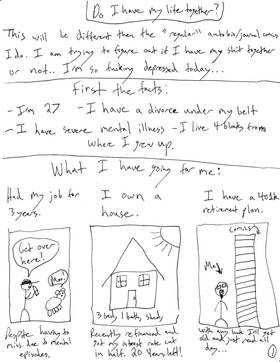 Do I have my life together?
This will be different then the "regular" autobio/journal comics
I do. I am trying to figure out if I have my shit together
or not.. I'm so fucking depressed today...
First the facts:
-I'm 27 -I have a divorce under my belt
-I have severe mental illness -I live 4 blocks from
where I grew up.
What I have going for me:
Had my job for
3 years.
Get over
here!
Despite having to
miss due to mental
episodes.
I own a
house.
3 beds 1 bath, shady
Recently refinanced and
got my interest rate cut
in half. 20 years left!
I have a 401k
retirement plan.
Comics
Me
With any luck I'll get
old and just read all
day...
1